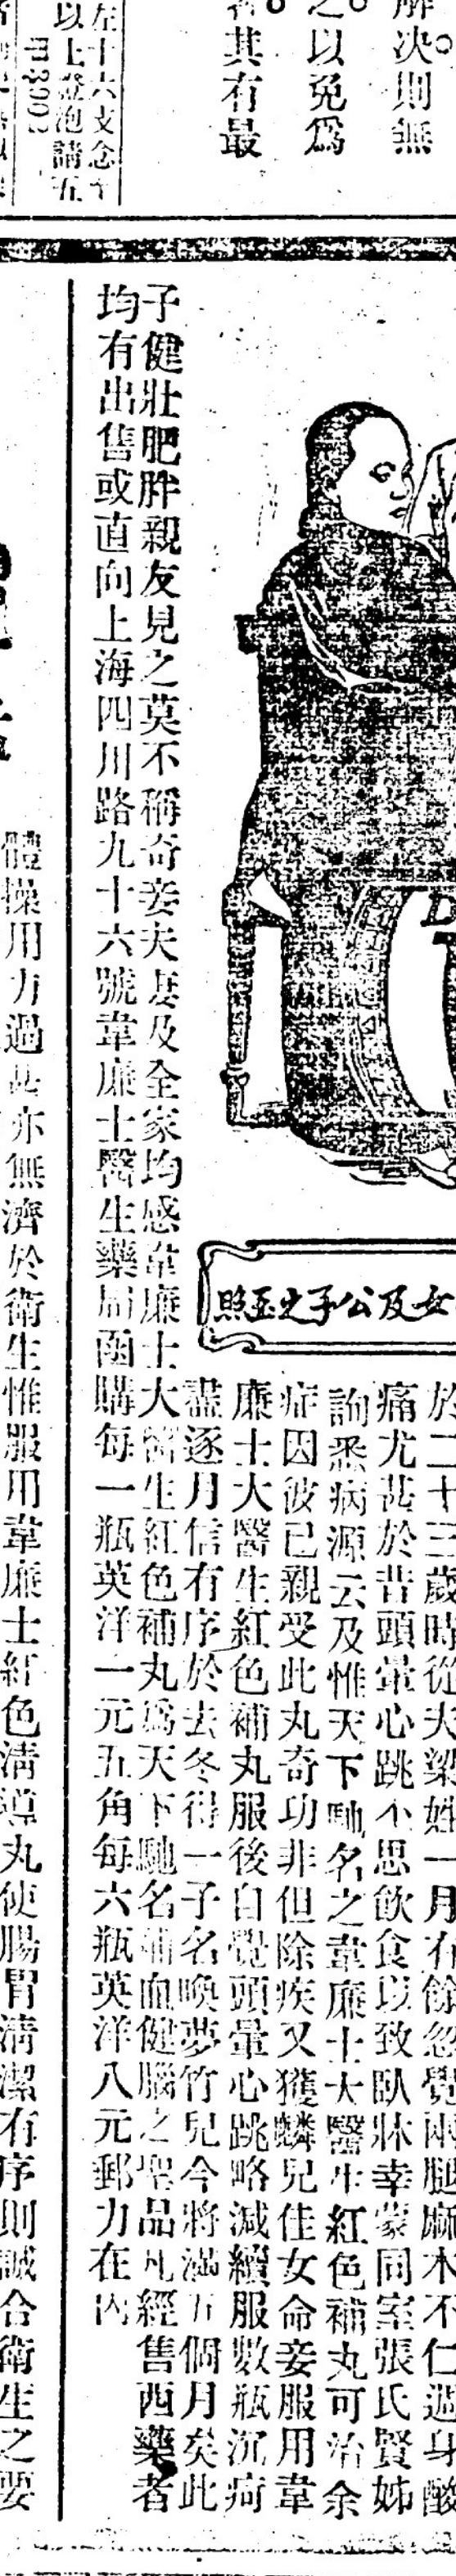 解决則無
之以免爲
者其有最
左十六支念
以上證泡請五
女及公子之玉照
於二十三歲時從夫梁姓一月有餘忽覺兩腿麻木不仁週身酸
痛尤甚於昔頭暈心跳不思飲食以致臥牀幸蒙同室張氏賢姊
詢悉病源云及惟天下馳名之韋廉士大醫生紅色補丸可治余
症因彼已親受此丸奇功非但除疾又獲麟兒佳女命妾服用韋
廉士大醫生紅色補丸服後自覺頭暈心跳略減續服數瓶沉疴
盡逐月信有序於去冬得一子名喚夢竹兒今將滿五個月矣此
子健壯肥胖親友見之莫不稱奇妾夫妻及全家均感韋廉士大醫生紅色補丸爲天下馳名補血健腦之聖品凡經售西藥者
均有出售或直向上海四川路九十六號韋廉士醫生藥局函購每一瓶英洋一元五角每六瓶英洋八元郵力在內
體操用力過甚亦無濟於衛生惟服用韋廉士紅色清導丸使腸胃清潔有序則誠合衛生之要